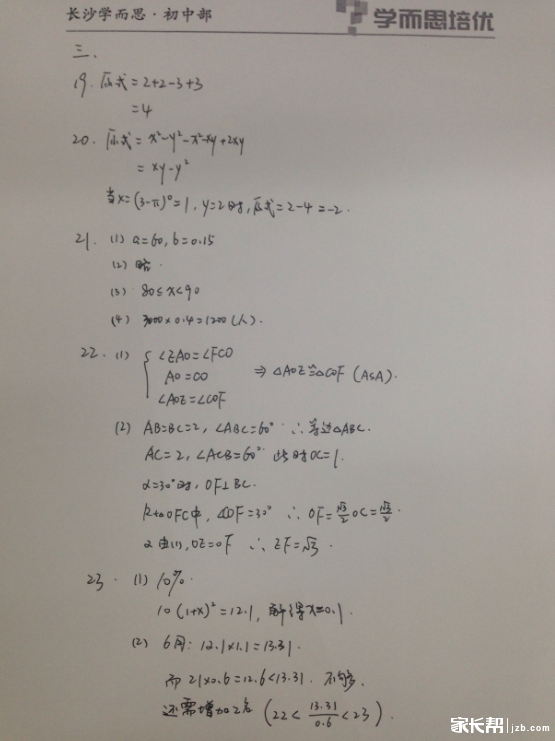 长沙学而思·初中部
学而思培优
三、
19. 原式=2+2-3+3
=4
20. 原式=x²-y²-x²-xy+2xy
=xy-y²
当x=(3-π)⁰=1, y=2时, 原式=2-4=-2.
21. (1) a=60, b=0.15
(2) 略.
(3) 80≤x<90
(4) 3000×0.4=1200(人).
22. (1) { ∠EAO=∠FCO
AO=CO ⇒ △AOE≌△COF (ASA).
∠AOE=∠COF
(2) AB=BC=2, ∠ABC=60° ∴等边△ABC.
AC=2, ∠ACB=60° 此时OC=1.
α=30°时, OF⊥BC.
Rt△OFC中, ∠COF=30° ∴ OF=√3/2 OC=√3/2.
又由(1), OE=OF ∴ EF=√3.
23. (1) 10%.
10(1+x)²=12.1, 解得x=0.1.
(2) 6月: 12.1×1.1=13.31.
而 21×0.6=12.6<13.31. 不够.
还需增加2名 (22<13.31/0.6<23).
家长帮 jzb.com